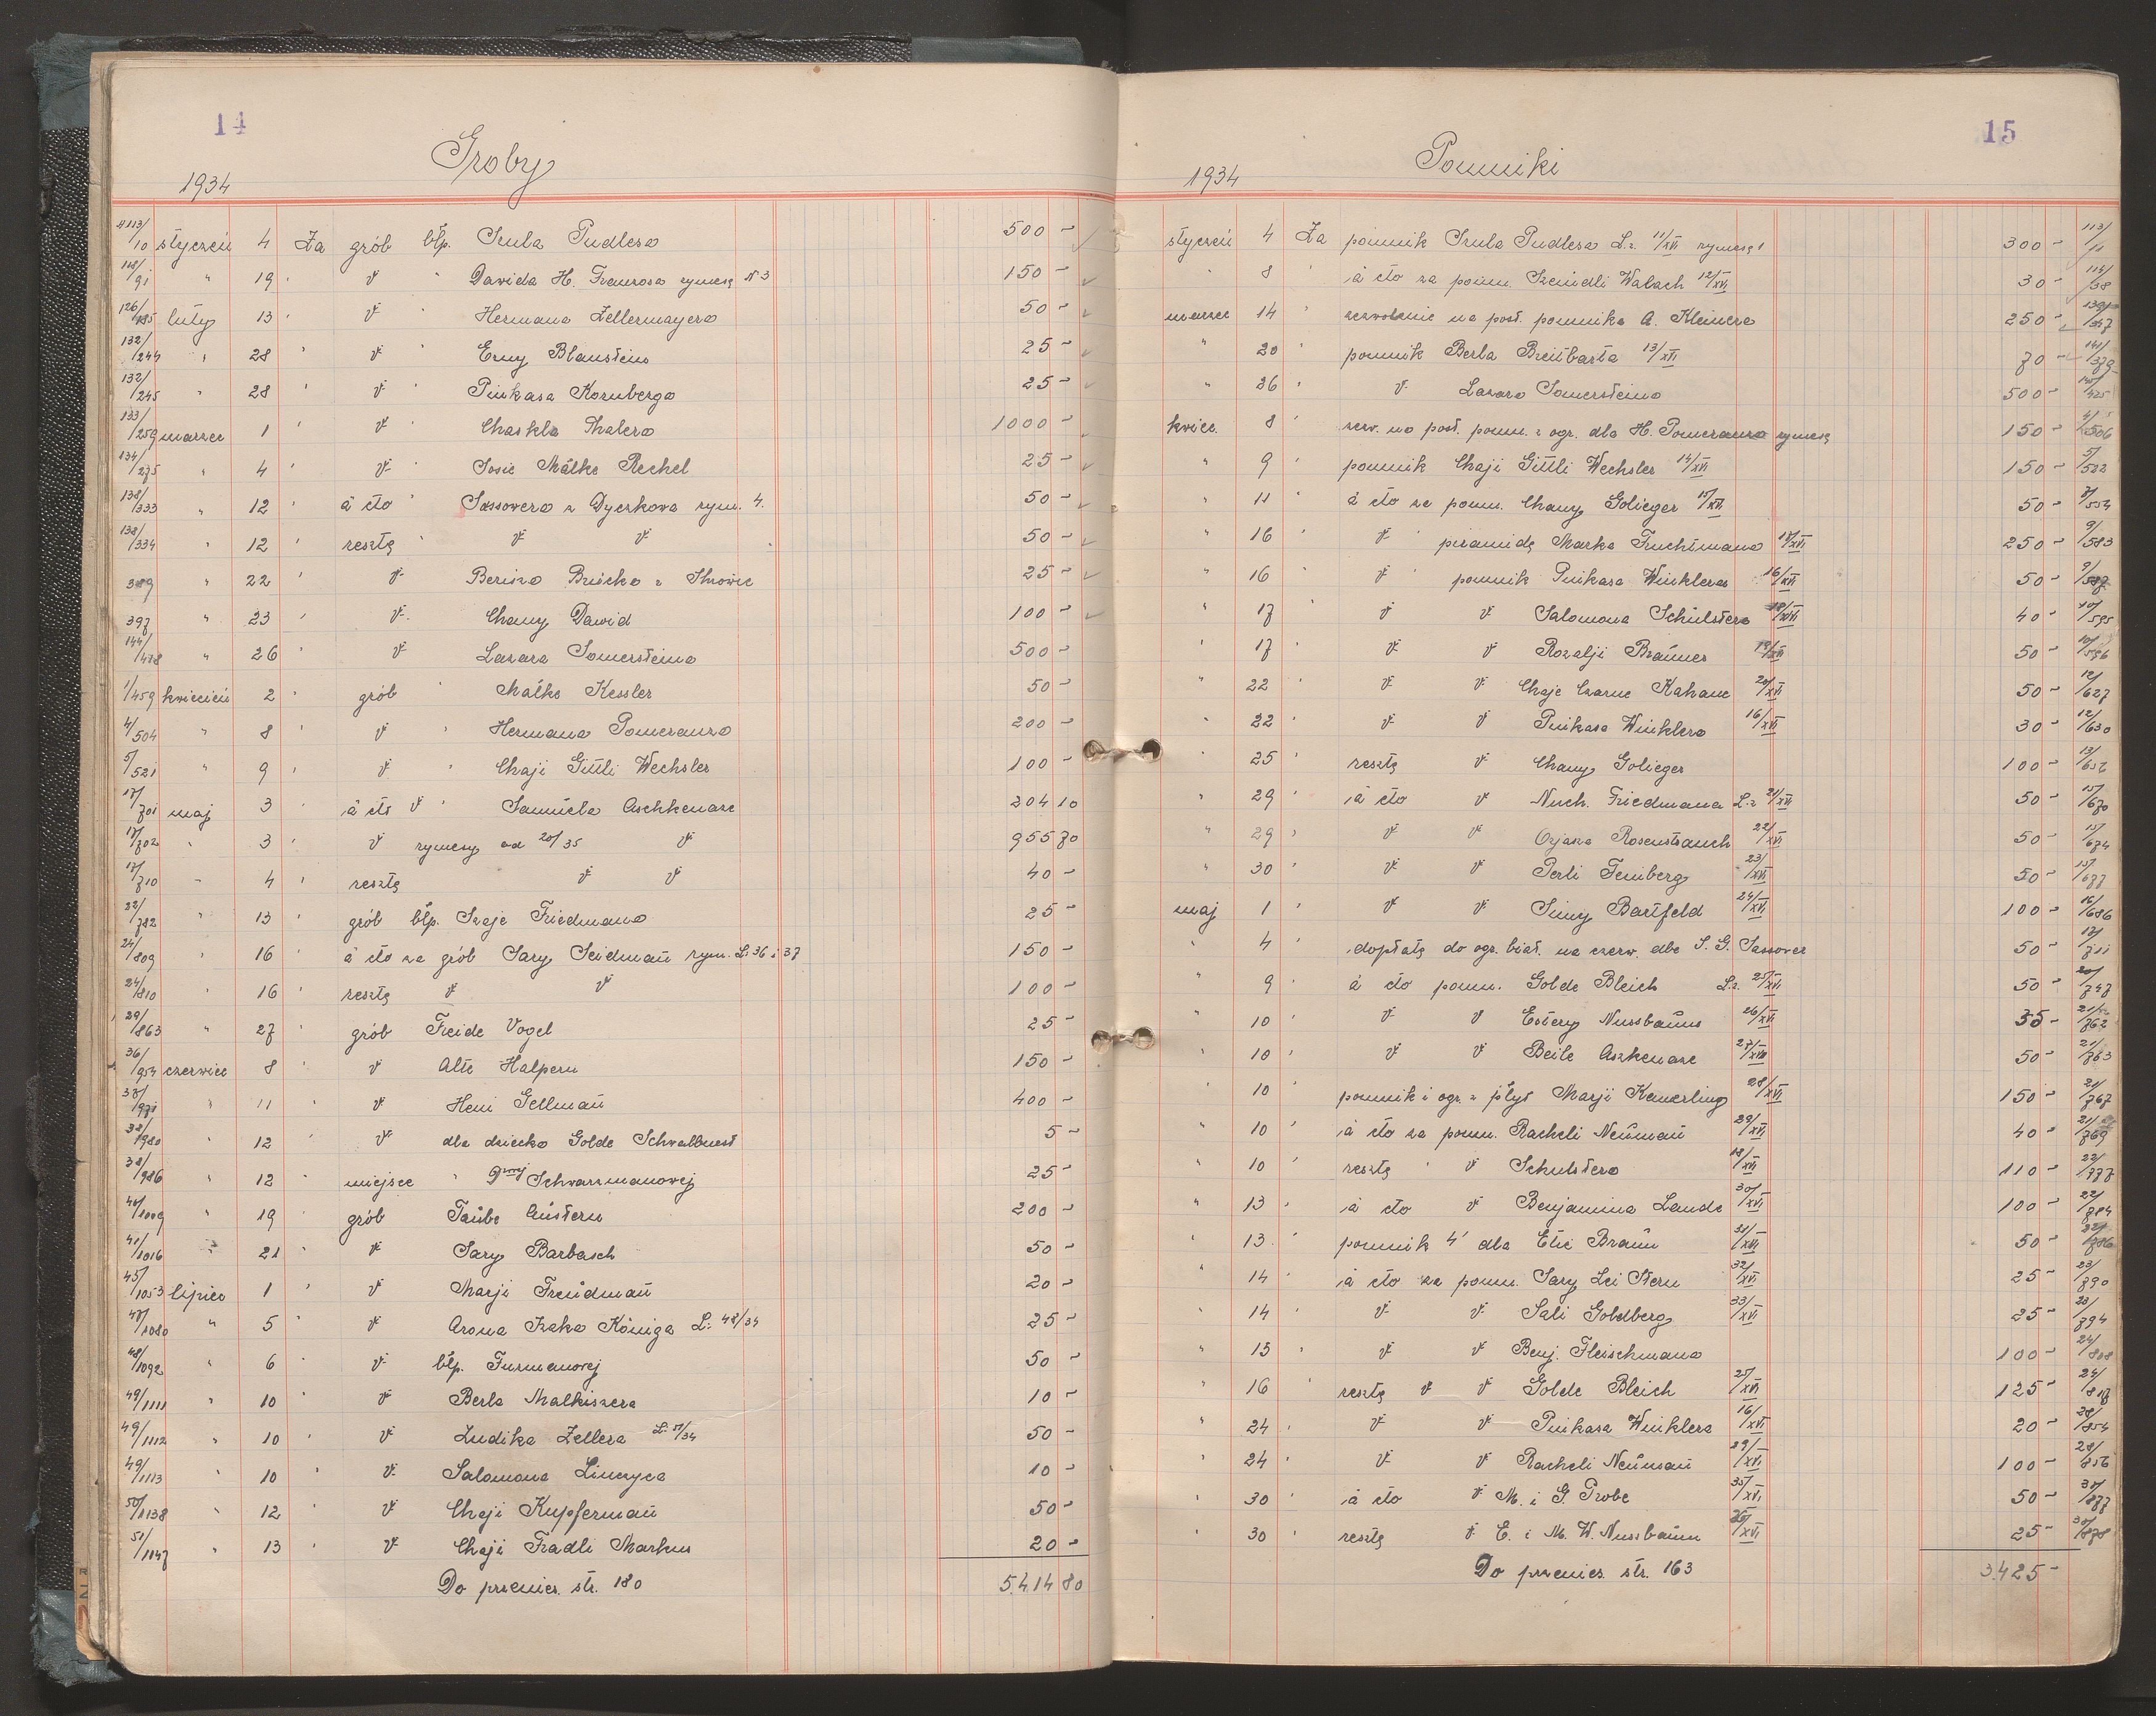 14
Groby
1934
4113/10 styczeń 4 Za grób błp. Srula Pudlesa 500 -
118/91 " 19 " " " Dawida H. Franzosa rymesą N 3 150 -
126/185 luty 13 " " " Hermana Zellermayera 50 -
132/244 " 28 " " " Erny Blaustein 25 -
132/245 " 28 " " " Pinkasa Kornberga 25 -
133/259 marzec 1 " " " Chaskla Thalera 1000 -
134/275 " 4 " " " Sosie Malke Rechel 25 -
138/333 " 12 " á cto " Sassowera z Dyczkowa rym. 4. 50 -
138/334 " 12 " resztę " " " 50 -
389 " 22 " " Berisza Bricka z Ihrowic 25 -
397 " 23 " " Chany Dawid 100 -
144/438 " 26 " " Lazara Somersteina 500 -
1/459 kwiecień 2 " grób " Malke Kessler 50 -
4/504 " 8 " " " Hermana Pomeranza 200 -
5/521 " 9 " " " Chaji Gittli Wechsler 100 -
17/701 maj 3 " á cto " " Samuela Aschkenase 204 10
17/702 " 3 " " rymesy od 20/35 " 955 70
17/710 " 4 " resztę " " 40 -
22/782 " 13 " grób błp. Szaje Friedmana 25 -
24/809 " 16 " á cto za grób Sary Seidman rym. L: 36 i 37 150 -
24/810 " 16 " resztę " " 100 -
29/863 " 27 " grób Freide Vogel 25 -
36/954 czerwiec 8 " " Alte Halpern 150 -
37/971 " 11 " " Heni Gellman 400 -
38/980 " 12 " " dla dziecka Golde Schwalbnest 5 -
38/986 " 12 " miejsce " Drowej Schwarzmanowej 25 -
40/1009 " 19 " grób Taube Austern 200 -
41/1016 " 21 " " Sary Barbasch 50 -
45/1053 lipiec 1 " " Marji Freudman 20 -
47/1080 " 5 " " Arona Izaka Königa L: 48/34 25 -
48/1092 " 6 " " błp. Furmanowej 50 -
49/1111 " 10 " " Berla Malkiszera 10 -
49/1112 " 10 " " Ludika Zellera L: 51/34 50 -
49/1113 " 10 " " Salomona Linczyca 10 -
50/1138 " 12 " " Chaji Kupferman 50 -
51/1147 " 13 " " Chaji Fradli Markus 20 -
Do przenies. str. 180 5.414 80
15
Pomniki
1934
styczeń 4 Za pomnik Srula Pudlesa L: 11/XVI rymesą 1 300 - 113/11
" 8 " á cto za pomn. Szeindli Walach 12/XVI 30 - 114/38
marzec 14 " zezwolenie na post. pomnika A. Kleinera 250 - 139/347
" 20 " pomnik Berla Breitbarta 13/XVI 70 - 141/379
" 26 " " Lazara Somersteina 500 - 145/425
kwiec. 8 " zezw. na post. pomn. z ogr. dla H. Pomeranza rymesą 150 - 4/506
" 9 " pomnik Chaji Gittli Wechsler 14/XVI 150 - 5/522
" 11 " á cto za pomn. Chany Golieger 15/XVI 50 - 7/554
" 16 " " " piramidę Marka Fruchtmana 17/XVI 250 - 9/583
" 16 " " " pomnik Pinkasa Winklera 16/XVI 50 - 9/587
" 17 " " " Salomona Schulstera 18/XVI 40 - 10/595
" 17 " " " Rozalji Brauner 19/XVI 50 - 10/596
" 22 " " " Chaje Czarne Kahane 20/XVI 50 - 12/627
" 22 " " " Pinkasa Winklera 16/XVI 30 - 12/630
" 25 " resztę " Chany Golieger 100 - 13/656
" 29 " á cto " Nuch. Friedmana L: 21/XVI 50 - 15/670
" 29 " " " Ozjasza Rosenstrauch 22/XVI 50 - 15/674
" 30 " " " Perli Feinberg 23/XVI 50 - 15/677
maj 1 " " " Simy Bartfeld 24/XVI 100 - 16/686
" 4 " dopłatę do ogr. biał. na czerw. dla S. G. Sassower 50 - 17/711
" 9 " á cto pomn. Golde Bleich L: 25/XVI 50 - 20/747
" 10 " " " Estery Nussbaum 26/XVI 35 - 21/762
" 10 " " " Beile Aszkenaze 27/XVI 50 - 21/763
" 10 " pomnik i ogr. z płyt Marji Kemerling 28/XVI 150 - 21/767
" 10 " á cto za pomn. Racheli Neuman 29/XVI 40 - 21/769
" 10 " resztę " " Schulstera 18/XVI 110 - 22/777
" 13 " á cto " Benjamina Lande 30/XVI 100 - 22/784
" 13 " pomnik 4' dla Etie Braun 31/XVI 50 - 22/786
" 14 " á cto za pomn. Sary Lei Stern 32/XVI 25 - 23/790
" 14 " " " Sali Goldberg 33/XVI 25 - 23/794
" 15 " " " Benj. Fleischmana 100 - 24/808
" 16 " resztę " " Golde Bleich 25/XVI 125 - 24/817
" 24 " " " Pinkasa Winklera 16/XVI 20 - 28/854
" 24 " " " Racheli Neuman 29/XVI 100 - 28/856
" 30 " á cto " M. i G. Probe 35/XVI 50 - 30/877
" 30 " resztę " E. i M. W. Nussbaum 26/XVI 25 - 30/878
Do przenies. str. 163 3.425 -